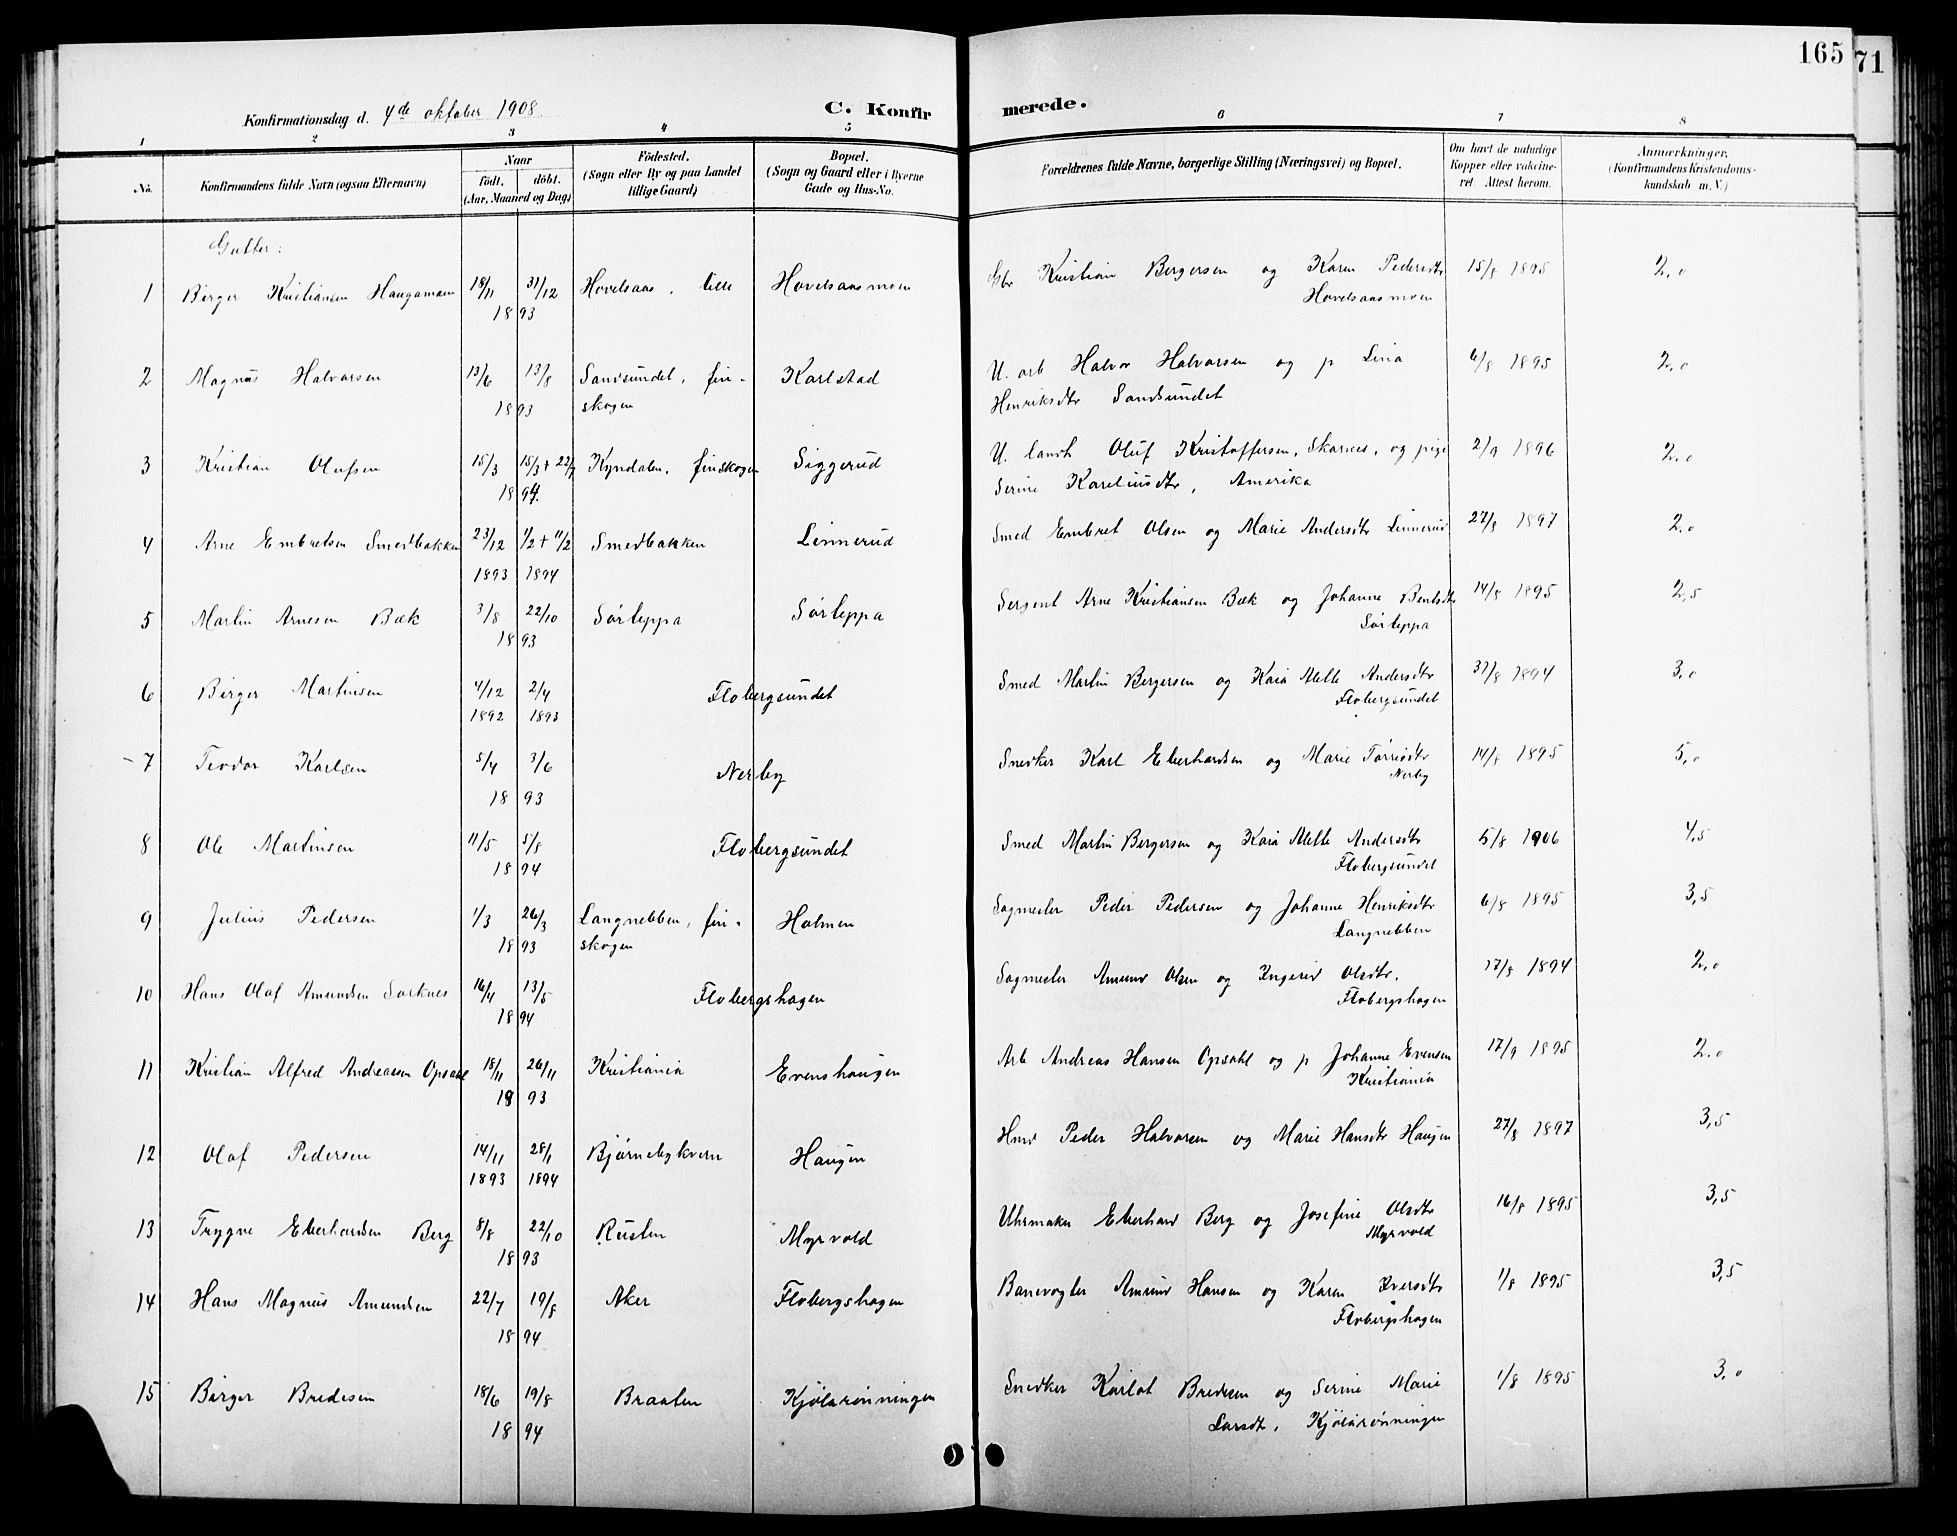 165
71
Konfirmationsdag d. 4de oktober 1908.
C. Konfirmerede.
1 2 3 4 5 6 7 8
No. Konfirmandens fulde Navn (ogsaa Efternavn) Naar Født. døbt. (Aar, Maaned og Dag) Fødested. (Sogn eller By og paa Landet tillige Gaard) Bopæl. (Sogn og Gaard eller i Byerne Gade og Hus-No. Forældrenes fulde Navne, borgerlige Stilling (Næringsvei) og Bopæl. Om havt de naturlige Kopper eller vakcineret. Attest herom. Anmærkninger. (Konfirmandens Kristendomskundskab m. V.)
Gutter:
1 Birger Kristiansen Haugamoen 18/11 31/12 1893 Hovelsaas, lille Hovelsaasmoen Gbr Kristian Bergersen og Karen Pedersdtr Hovelsaasmoen 15/8 1895 2,0
2 Magnus Halvorsen 13/6 13/8 1893 Sandsundet, finskogen Karlstad U. arb Halvor Halvorsen og p Lina Henriksdtr Sandsundet 6/8 1895 2,0
3 Kristian Olufsen 15/3 15/3 + 22/7 1894. Kyndalen, finskogen Siggerud U. landh Oluf Kristoffersen, Skarnes, og pige Serine Kareliusdtr, Amerika 2/9 1896 2,0
4 Arne Embretsen Smedbakken 23/12 1893 1/2 + 11/2 1894 Smedbakken Linnerud Smed Embret Olsen og Marie Andersdtr Linnerud 27/8 1897 2,0
5 Martin Arnesen Bæk 3/8 22/10 1893 Sørleppa Sørleppa Sergent Arne Kristiansen Bæk og Johanne Bentsdtr Sørleppa 14/8 1895 2,5
6 Birger Martinsen 4/12 1892 2/4 1893 Flobergsundet Smed Martin Bergersen og Kaia Mette Andersdtr Flobergsundet 31/8 1894 3,0
7 Teodor Karlsen 5/4 3/6 1893 Nerby Snedker Karl Eberhardsen og Marie Torrisdtr Nerby 14/8 1895 5,0
8 Ole Martinsen 11/5 5/8 1894 Flobergsundet Smed Martin Bergersen og Kaia Mette Andersdtr Flobergsundet 5/8 1906 4,5
9 Julius Pedersen 1/3 26/3 1893 Langnebben, finskogen Holmen Sagmester Peder Pedersen og Johanne Henriksdtr Langnebben 6/8 1895 3,5
10 Hans Olaf Amundsen Sorknes 16/4 13/5 1894 Flobergshagen Sagmester Amund Olsen og Ingerid Olsdtr. Flobergshagen 17/8 1894 2,0
11 Kristian Alfred Andreasen Opsahl 18/11 26/11 1893 Kristiania Evenshaugen Arb Andreas Hansen Opsahl og p Johanne Evensen Kristiania 17/9 1895 2,0
12 Olaf Pedersen 14/11 1893 28/1 1894 Bjørnebykvern Haugen Hmd Peder Halvorsen og Marie Hansdtr Haugen 27/8 1897 3,5
13 Trygve Eberhardsen Berg 8/8 22/10 1893 Rusten Myrvold Uhrmaker Eberhard Berg og Josefine Olsdtr Myrvold 16/8 1895 3,5
14 Hans Magnus Amundsen 22/7 19/8 1894 Aker Flobergshagen Banevogter Amund Hansen og Karen Iversdtr Flobergshagen 1/8 1895 3,5
15 Birger Bredesen 18/6 19/8 1894 Braaten Kjølarønningen Snedker Karlot Bredesen og Serine Marie Larsdtr, Kjølarønningen 1/8 1895 3,0